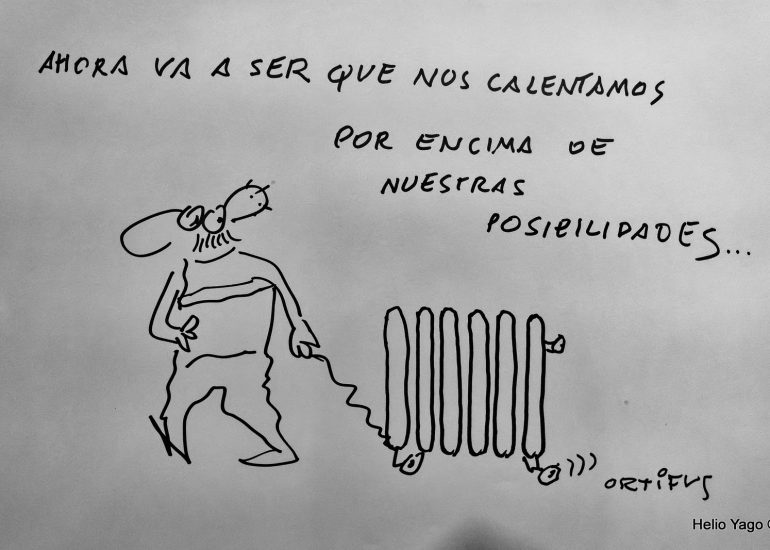 AHORA VA A SER QUE NOS CALENTAMOS
POR ENCIMA DE
NUESTRAS
POSIBILIDADES...
ORTIFUS
Helio Yago ©